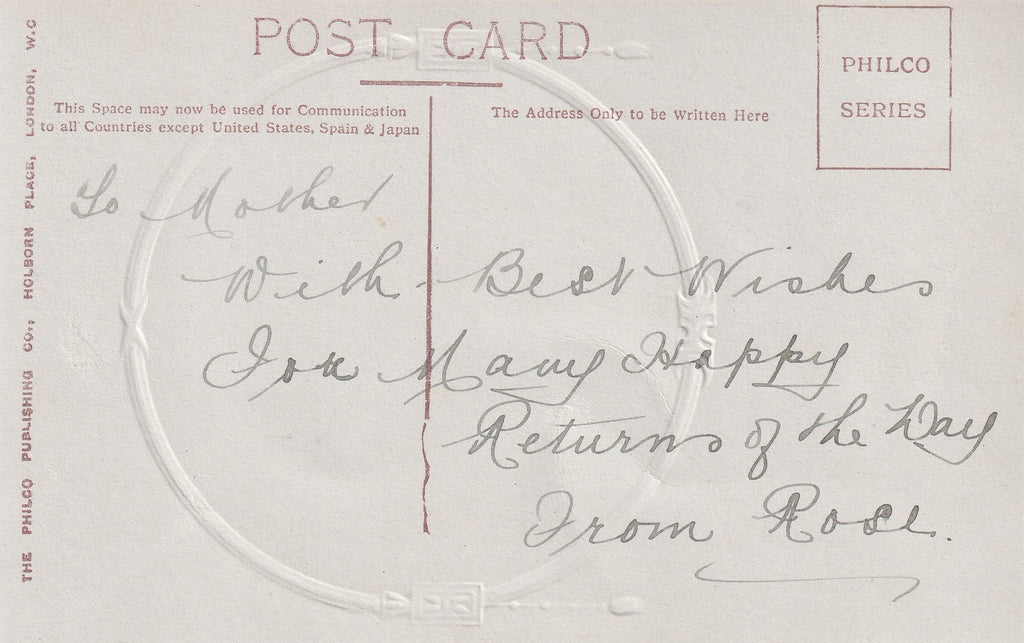 POST CARD
PHILCO
SERIES
This Space may now be used for Communication
to all Countries except United States, Spain & Japan
The Address Only to be Written Here
THE PHILCO PUBLISHING CO., HOLBORN PLACE, LONDON, W.C
To Mother
With Best Wishes
For Many Happy
Returns of the Day
From Rose.